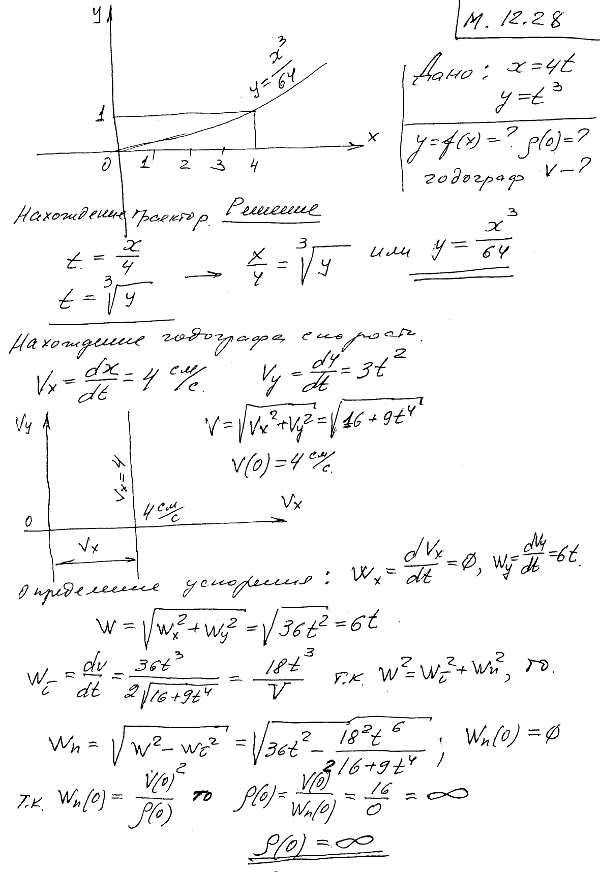 М. 12.28
y
y = x³/64
1
0 1 2 3 4 x
Дано: x=4t
y=t³
y=f(x)=? ρ(0)=?
годограф V-?
Нахождение траектор. Решение
t = x/4
t = ³√y → x/4 = ³√y или y = x³/64
Нахождение годографа скорость.
Vx = dx/dt = 4 см/с. Vy = dy/dt = 3t²
V = √(Vx²+Vy²) = √(16+9t⁴)
V(0) = 4 см/с.
Vy
Vx=4
0 4 см/с Vx
Vx
Определение ускорения: Wx = dVx/dt = 0, Wy = dVy/dt = 6t.
W = √(Wx²+Wy²) = √(36t²) = 6t
Wτ = dv/dt = 36t³/(2√(16+9t⁴)) = 18t³/V т.к. W² = Wτ²+Wn², то.
Wn = √(W²-Wτ²) = √(36t² - 18²t⁶/(16+9t⁴)); Wn(0) = 0
т.к. Wn(0) = V(0)²/ρ(0) то ρ(0) = V(0)²/Wn(0) = 16/0 = ∞
ρ(0) = ∞